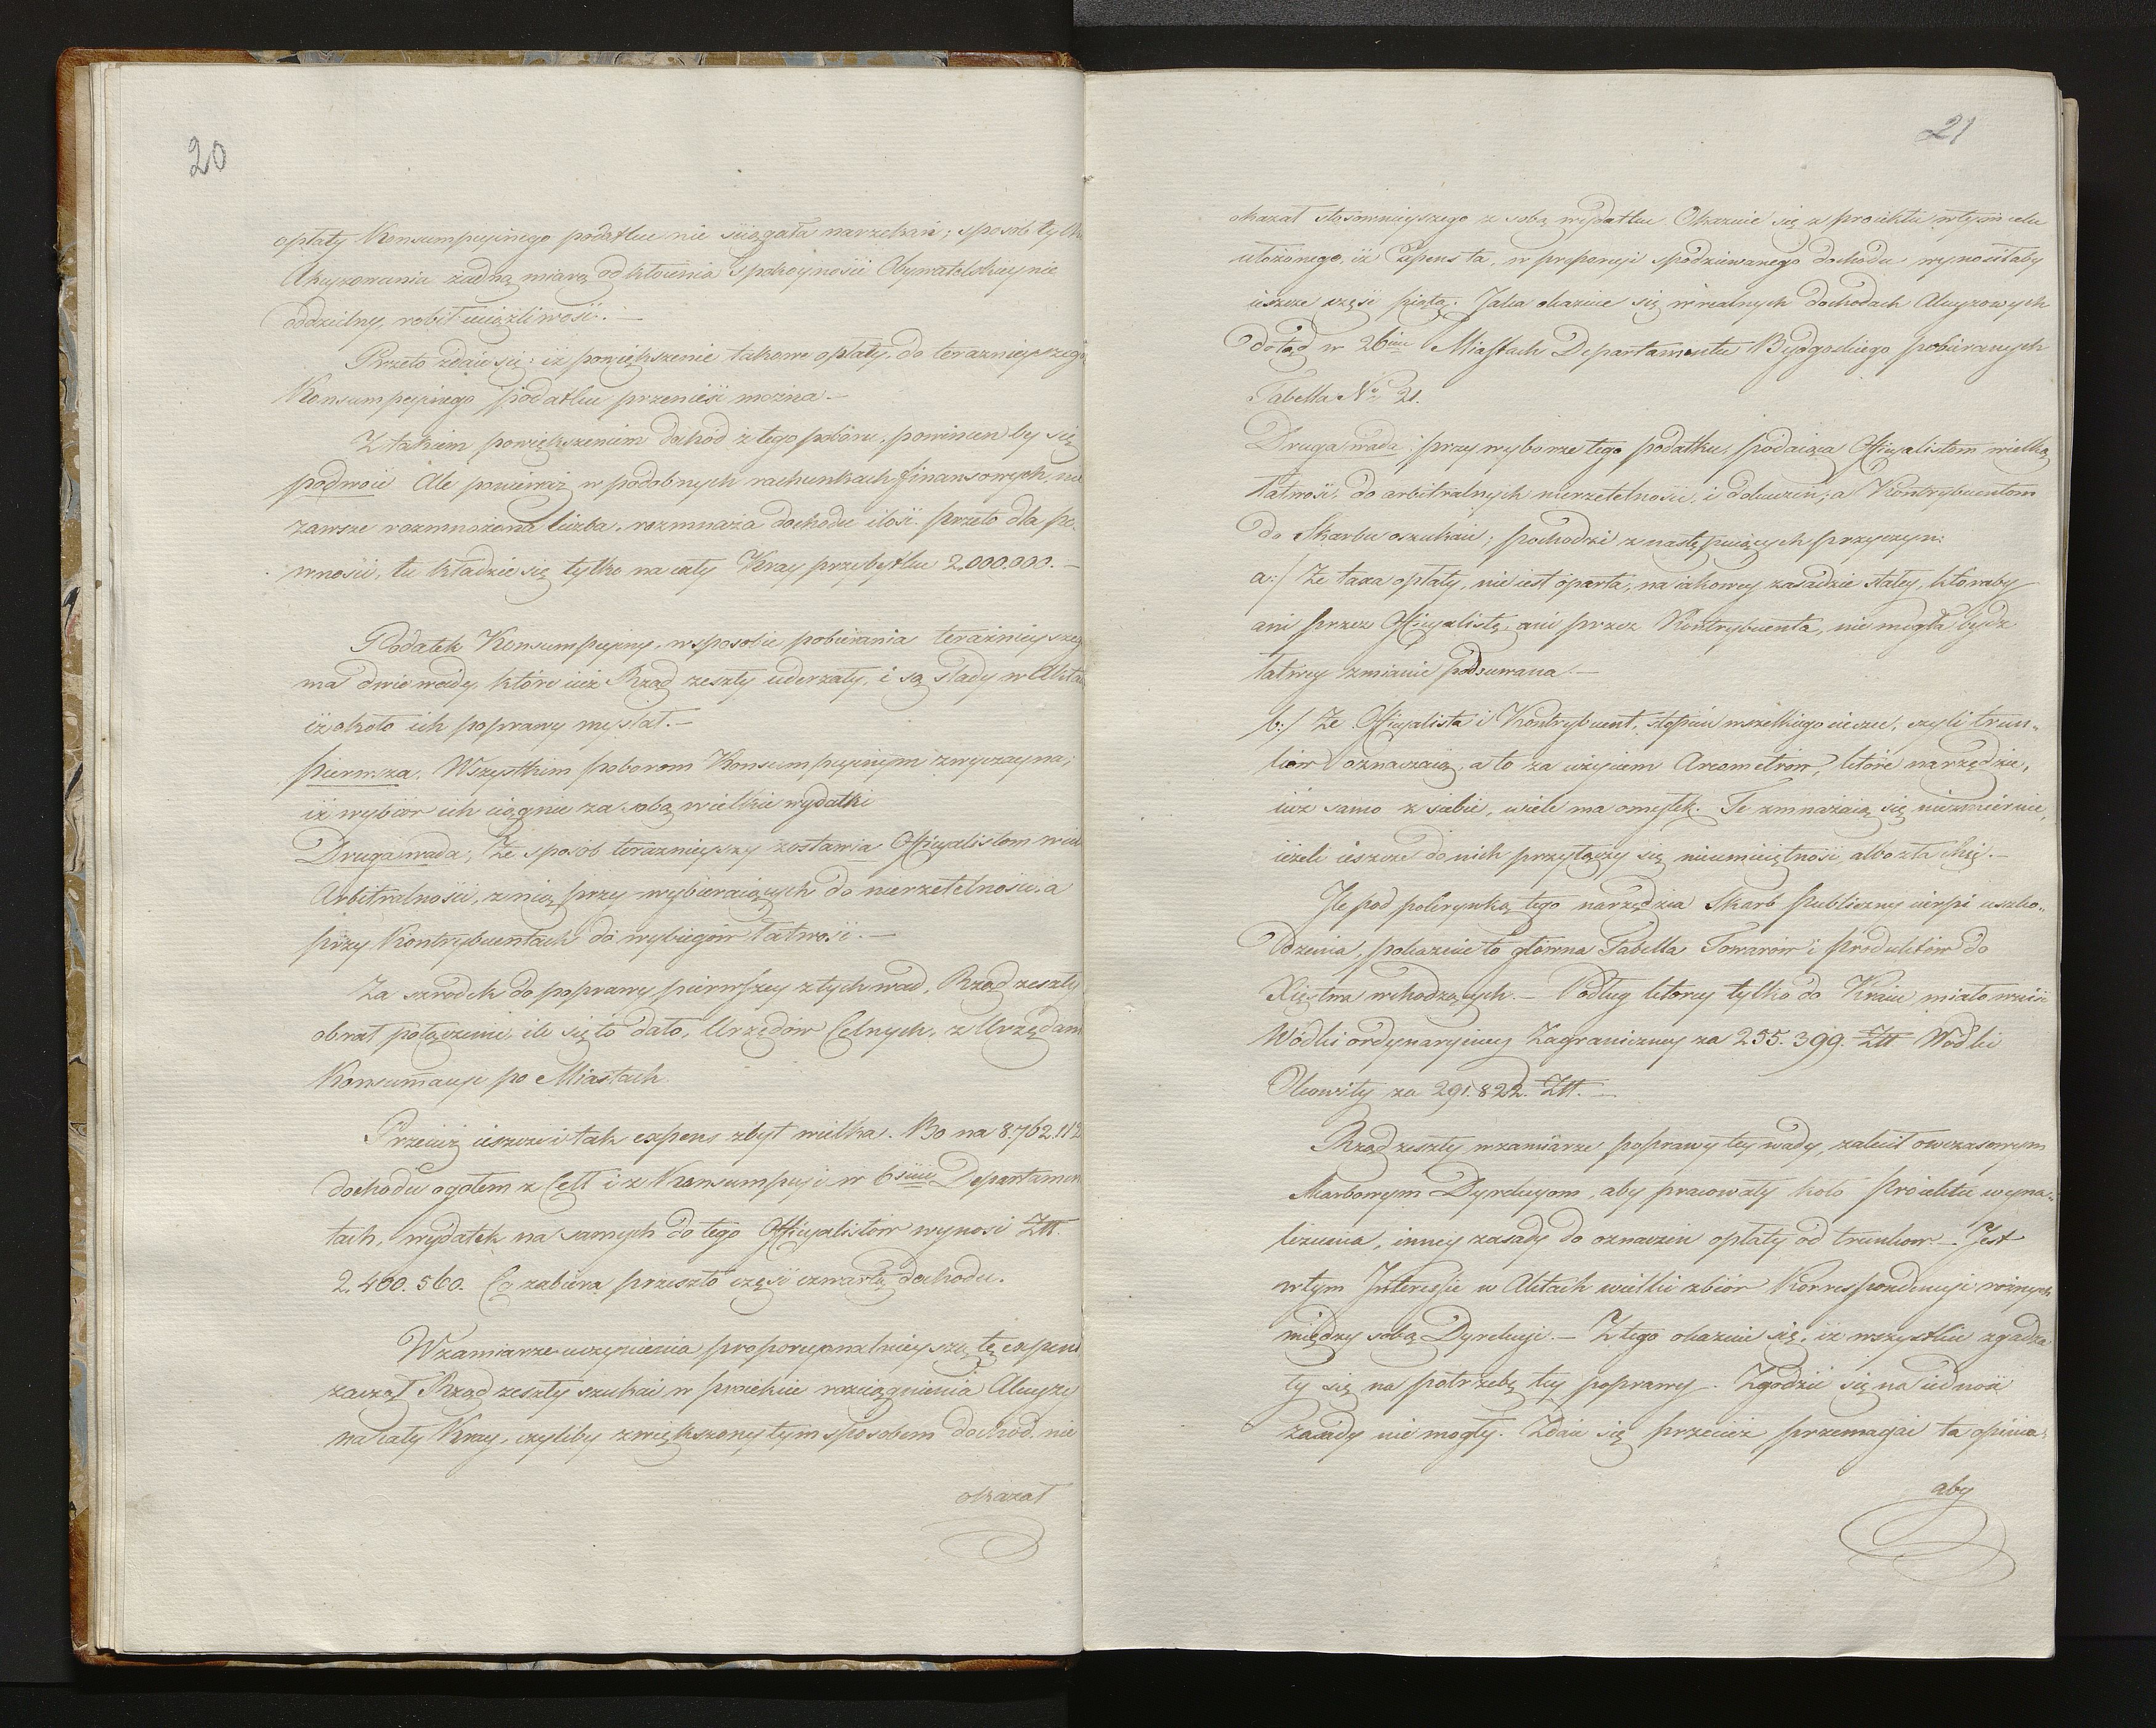 20
opłaty Konsumpcyinego podatku nie ściągała narzekań; sposób tylko
Akcyzowania żadną miarą od kłócenia Spokoyności Obywatelskiey nie
oddzielny, robił uciążliwość.—
Przeto zdaie się: iż powiększenie takowe opłaty, do teraznieyszego
Konsumpcyinego podatku przenieść można.—
Z takiem powiększeniem dochód z tego poboru, powinien by się
podwoić Ale ponieważ w podobnych rachunkach finansowych, nie
zawsze rozmnożona liczba, rozmnaża dochodu ilość. przeto dla pe-
wności, tu kładzie się tylko na cały Kray przybytku 2.000.000.—
Podatek Konsumpcyiny, w sposobie pobierania teraźnieyszego
ma dwie wady, które iuż Rząd zeszły uderzały, i są ślady w Aktach
iż około ich poprawy myślał.—
pierwsza. Wszystkim poborom Konsumpcyinym zwyczayna;
iż wybiór ich ciągnie za sobą wielkie wydatki
Druga wada, Że sposób teraznieyszy zostawia Officyalistom wiele
Arbitralności, z nią przy wybieraiących do nierzetelności, a
przy Kontrybuentach do wybiegów łatwość.—
Za szrodek do poprawy pierwszey z tych wad, Rząd zeszły
obrał połączenie, ile się to dało, Urzędów Celnych, z Urzędami
Konsumcyi po Miastach
Przecież ieszcze i tak expens zbyt wielka. Bo na 8.762.112
dochodu ogółem z Cełł i z Konsumpcyi w 6ściu Departamen
tach, wydatek na samych do tego Officyalistów wynosi Złł.
2.460.560. Co zabiera przeszło część czwartą dochodu.
W zamiarze uczynienia proporcyonalnieyszą tę expens
zaczął Rząd zeszły szukać w proiekcie rozciągnienia Akcyzy
na cały Kray, czyliby zwiększony tym sposobem dochód, nie
okazał
21
okazał stosownieyszego z sobą wydatku. Okazuie się z proiektu w tym celu
ułożonego, iż Expens ta, w proporcyi spodziewanego dochodu wynosiłaby
ieszcze część piątą. Jaka okazuie się w realnych dochodach Akcyzowych
dotąd w 26ciu Miastach Departamentu Bydgoskiego pobieranych
Tabella No 21.
Druga wada przy wyborze tego podatku, podaiąca Officyalistom wielką
łatwość, do arbitralnych nierzetelności, i dokuczeń; a Kontrybuentom
do Skarbu oszukań; pochodzi z następuiących przyczyn:
a:/ Że taxa opłaty, nie iest oparta, na iakowey zasadzie stałey, któraby
ani przez Officyalistę, ani przez Kontrybuenta, nie mogła bydz
łatwey zmianie podsuwana.—
b:/ Że Officyalista i Kontrybuent, stopień wszelkiego cieczu, czyli trun-
ków oznaczaią, a to za użyciem Areometrów, które narzędzie,
iuż samo z siebie, wiele ma omyłek. Te zmnażaią się niezmiernie,
ieżeli ieszcze do nich przyłączy się nieumieiętność, albo zła chęć.—
Ile pod pokrywką tego narzędzia Skarb Publiczny cierpi uszko-
dzenia, pokazuie to główna Tabella Towarów i Produktów do
Xięstwa wchodzących.— Podług którey tylko do Kraiu miało weiść
Wódki ordynaryiney Zagraniczney za 255.399. Złł Wódki
Okowity za 291.822. Złł.—
Rząd zeszły w zamiarze poprawy tey wady, zalecił owczasowym
Skarbowym Dyrekcyom, aby pracowały koło Proiektu wyna-
lezienia, inney zasady do oznaczeń opłaty od trunkow.— Jest
w tym Interesie w Aktach wielki zbiór Korrespondencyi roznych
między sobą Dyrekcyi.— Z tego okazuie się, iż wszystkie zgadza
ły się na potrzebę tey poprawy. Zgodzić się na iedność
zasady nie mogły. Zdaie się przecież przemagać ta opinia,
aby